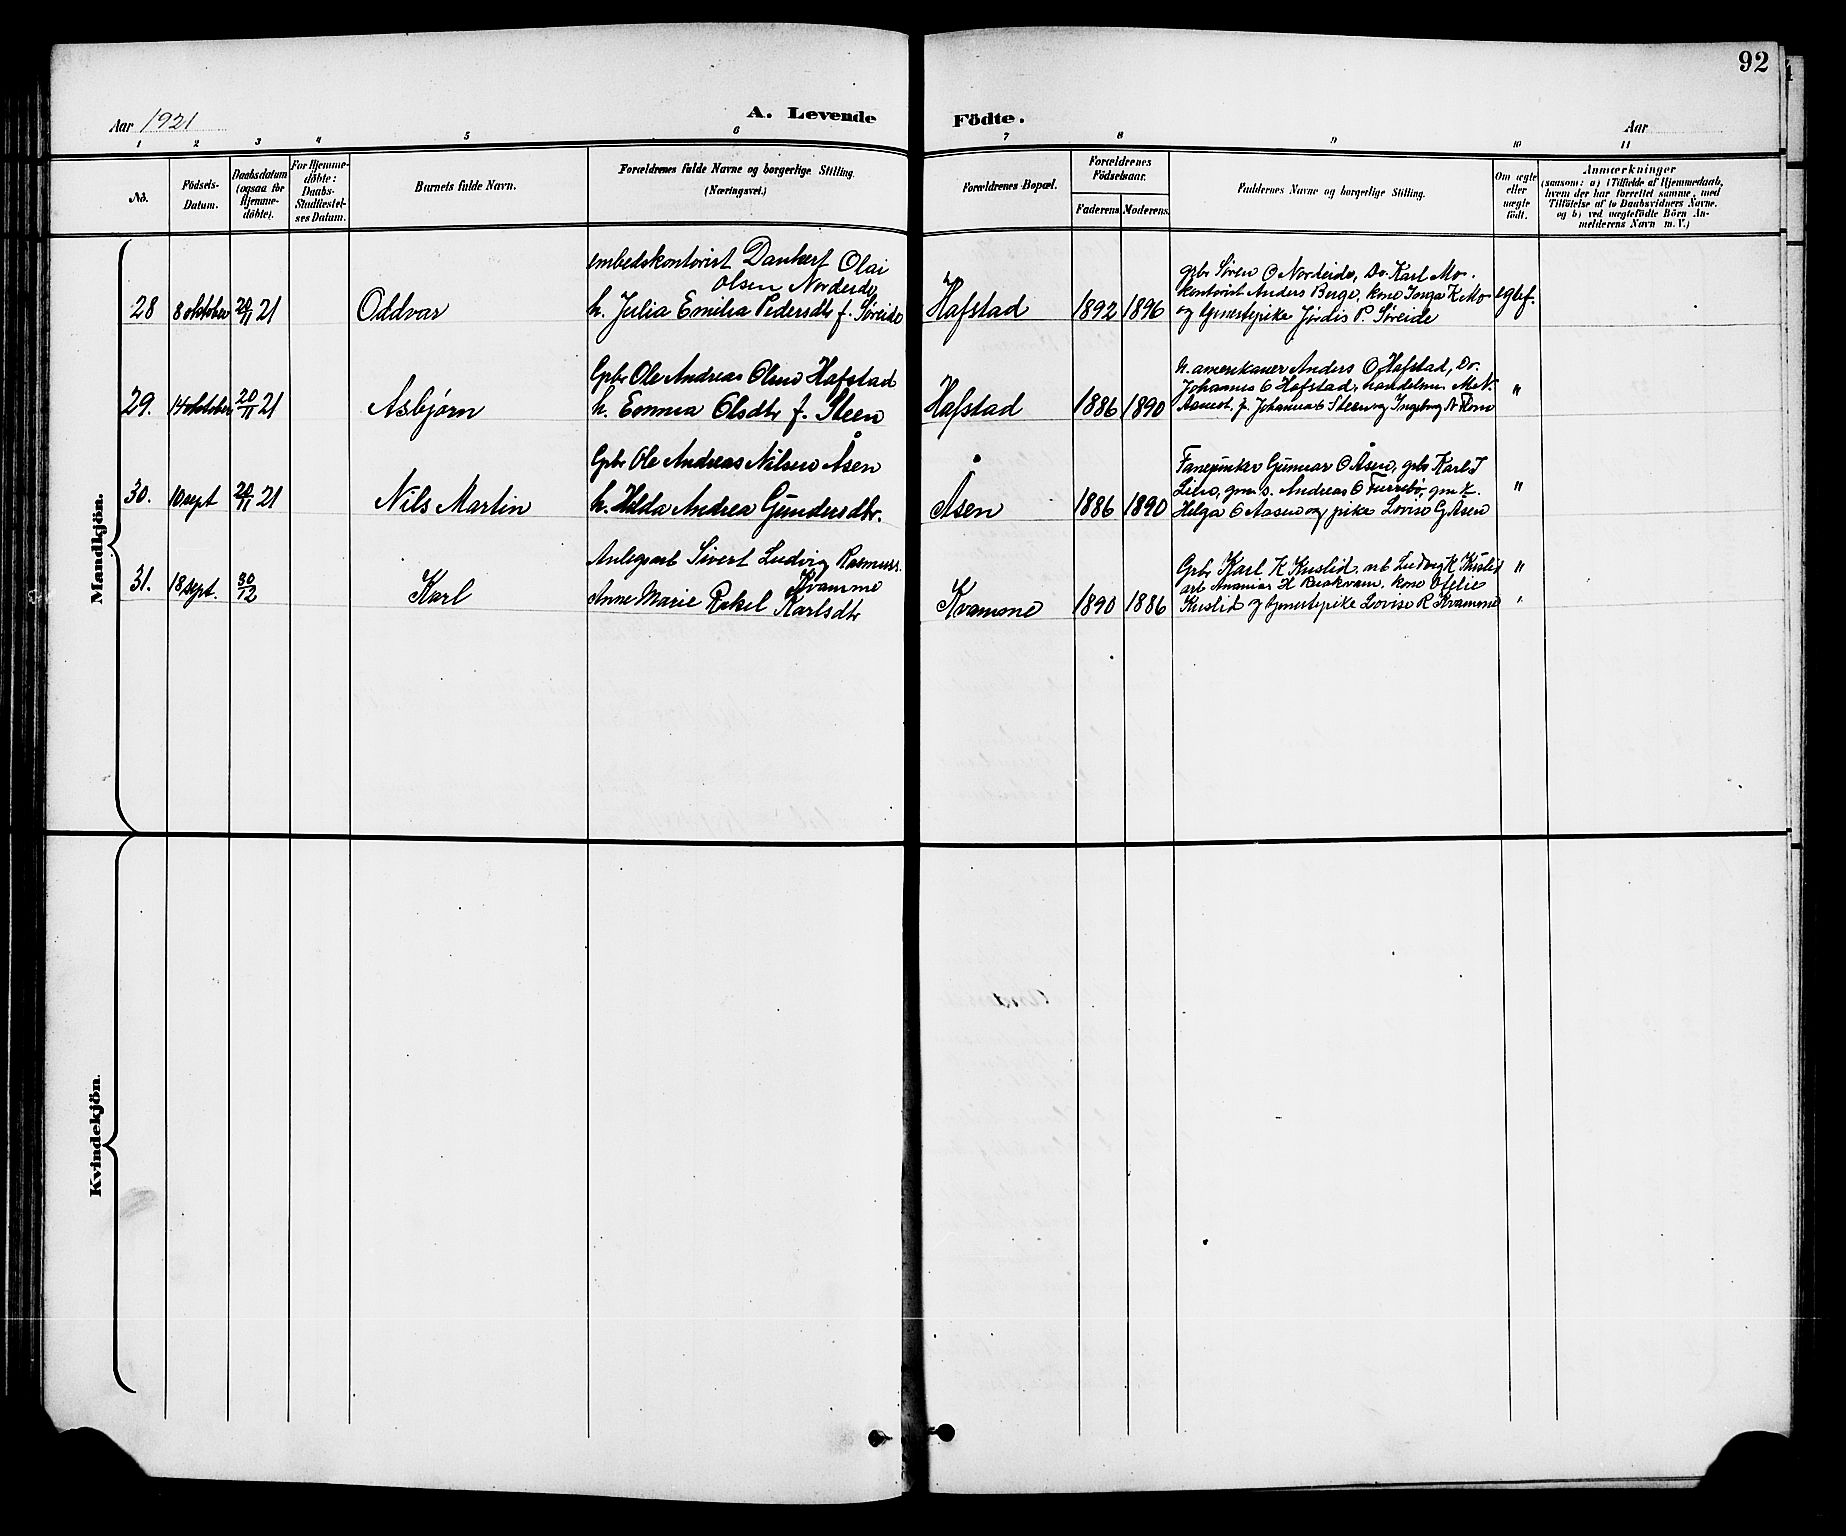 92
Aar 1921
A. Levende Födte.
Aar
1 2 3 4 5 6 7 8 9 10 11
No.
Födsels-
Datum.
Daabsdatum
(ogsaa for
Hjemme-
döbte).
For Hjemme-
döbte:
Daabs-
Stadfæstel-
ses Datum.
Barnets fulde Navn.
Forældrenes fulde Navne og borgerlige Stilling.
(Næringsvei.)
Forældrenes Bopæl.
Forældrenes
Födselsaar.
Faderens. Moderens.
Faddernes Navne og borgerlige Stilling.
Om ægte
eller
uægte
födt.
Anmærkninger
(saasom: a) i Tilfælde af Hjemmedaab,
hvem der har forrettet samme, med
Tilföielse af to Daabsvidners Navne,
og b) ved uægtefödte Börn An-
melderens Navn m. V.)
Mandkjön.
28 8 oktober 20/11 21 Oddvar
embedskontorist Dankert Olai
Olsen Norderde
h. Julia Emilia Pedersdtr f. Søreide
Hafstad 1892 1896
gbr Søren O Nordeide, Do. Karl Mo.
kontorist Anders Berge, kone Inga K Mo
og tjenestepike Jordis P. Søreide
egtef.
29. 14 oktober 20/11 21 Asbjørn
Gbr Ole Andreas Olsen Hafstad
h. Emma Olsdtr f. Steen
Hafstad 1886 1890
h. amerikaner Anders O Hafstad, Do.
Johannes O Hafstad, handelsm. M. N.
Johanna Steen og Ingeborg
"
30. 10 sept 20/11 21 Nils Martin
Gbr Ole Andreas Nilsen Åsen
h. Hilda Andrea Gundersdtr.
Åsen 1886 1890
Gunnar O Åsen, gbr Karl J
Lien, gm. s. Andreas O Furebø, gm. k.
Helga O Aasen og pike Lovise G Åsen
"
31. 18 sept. 30/12 Karl
Anlegsarb Sivert Ludvig Rasmuss.
Kvamme
Anne Marie Rakel Karlsdtr
Kvamme 1890 1886
Gbr Karl K Kuslid, arb Ludvig K Kuslid
arb Ananias H Brækvam, kone Ofelie
Kuslid og tjenestepike Lovise R Kvamme
"
Kvindekjön.